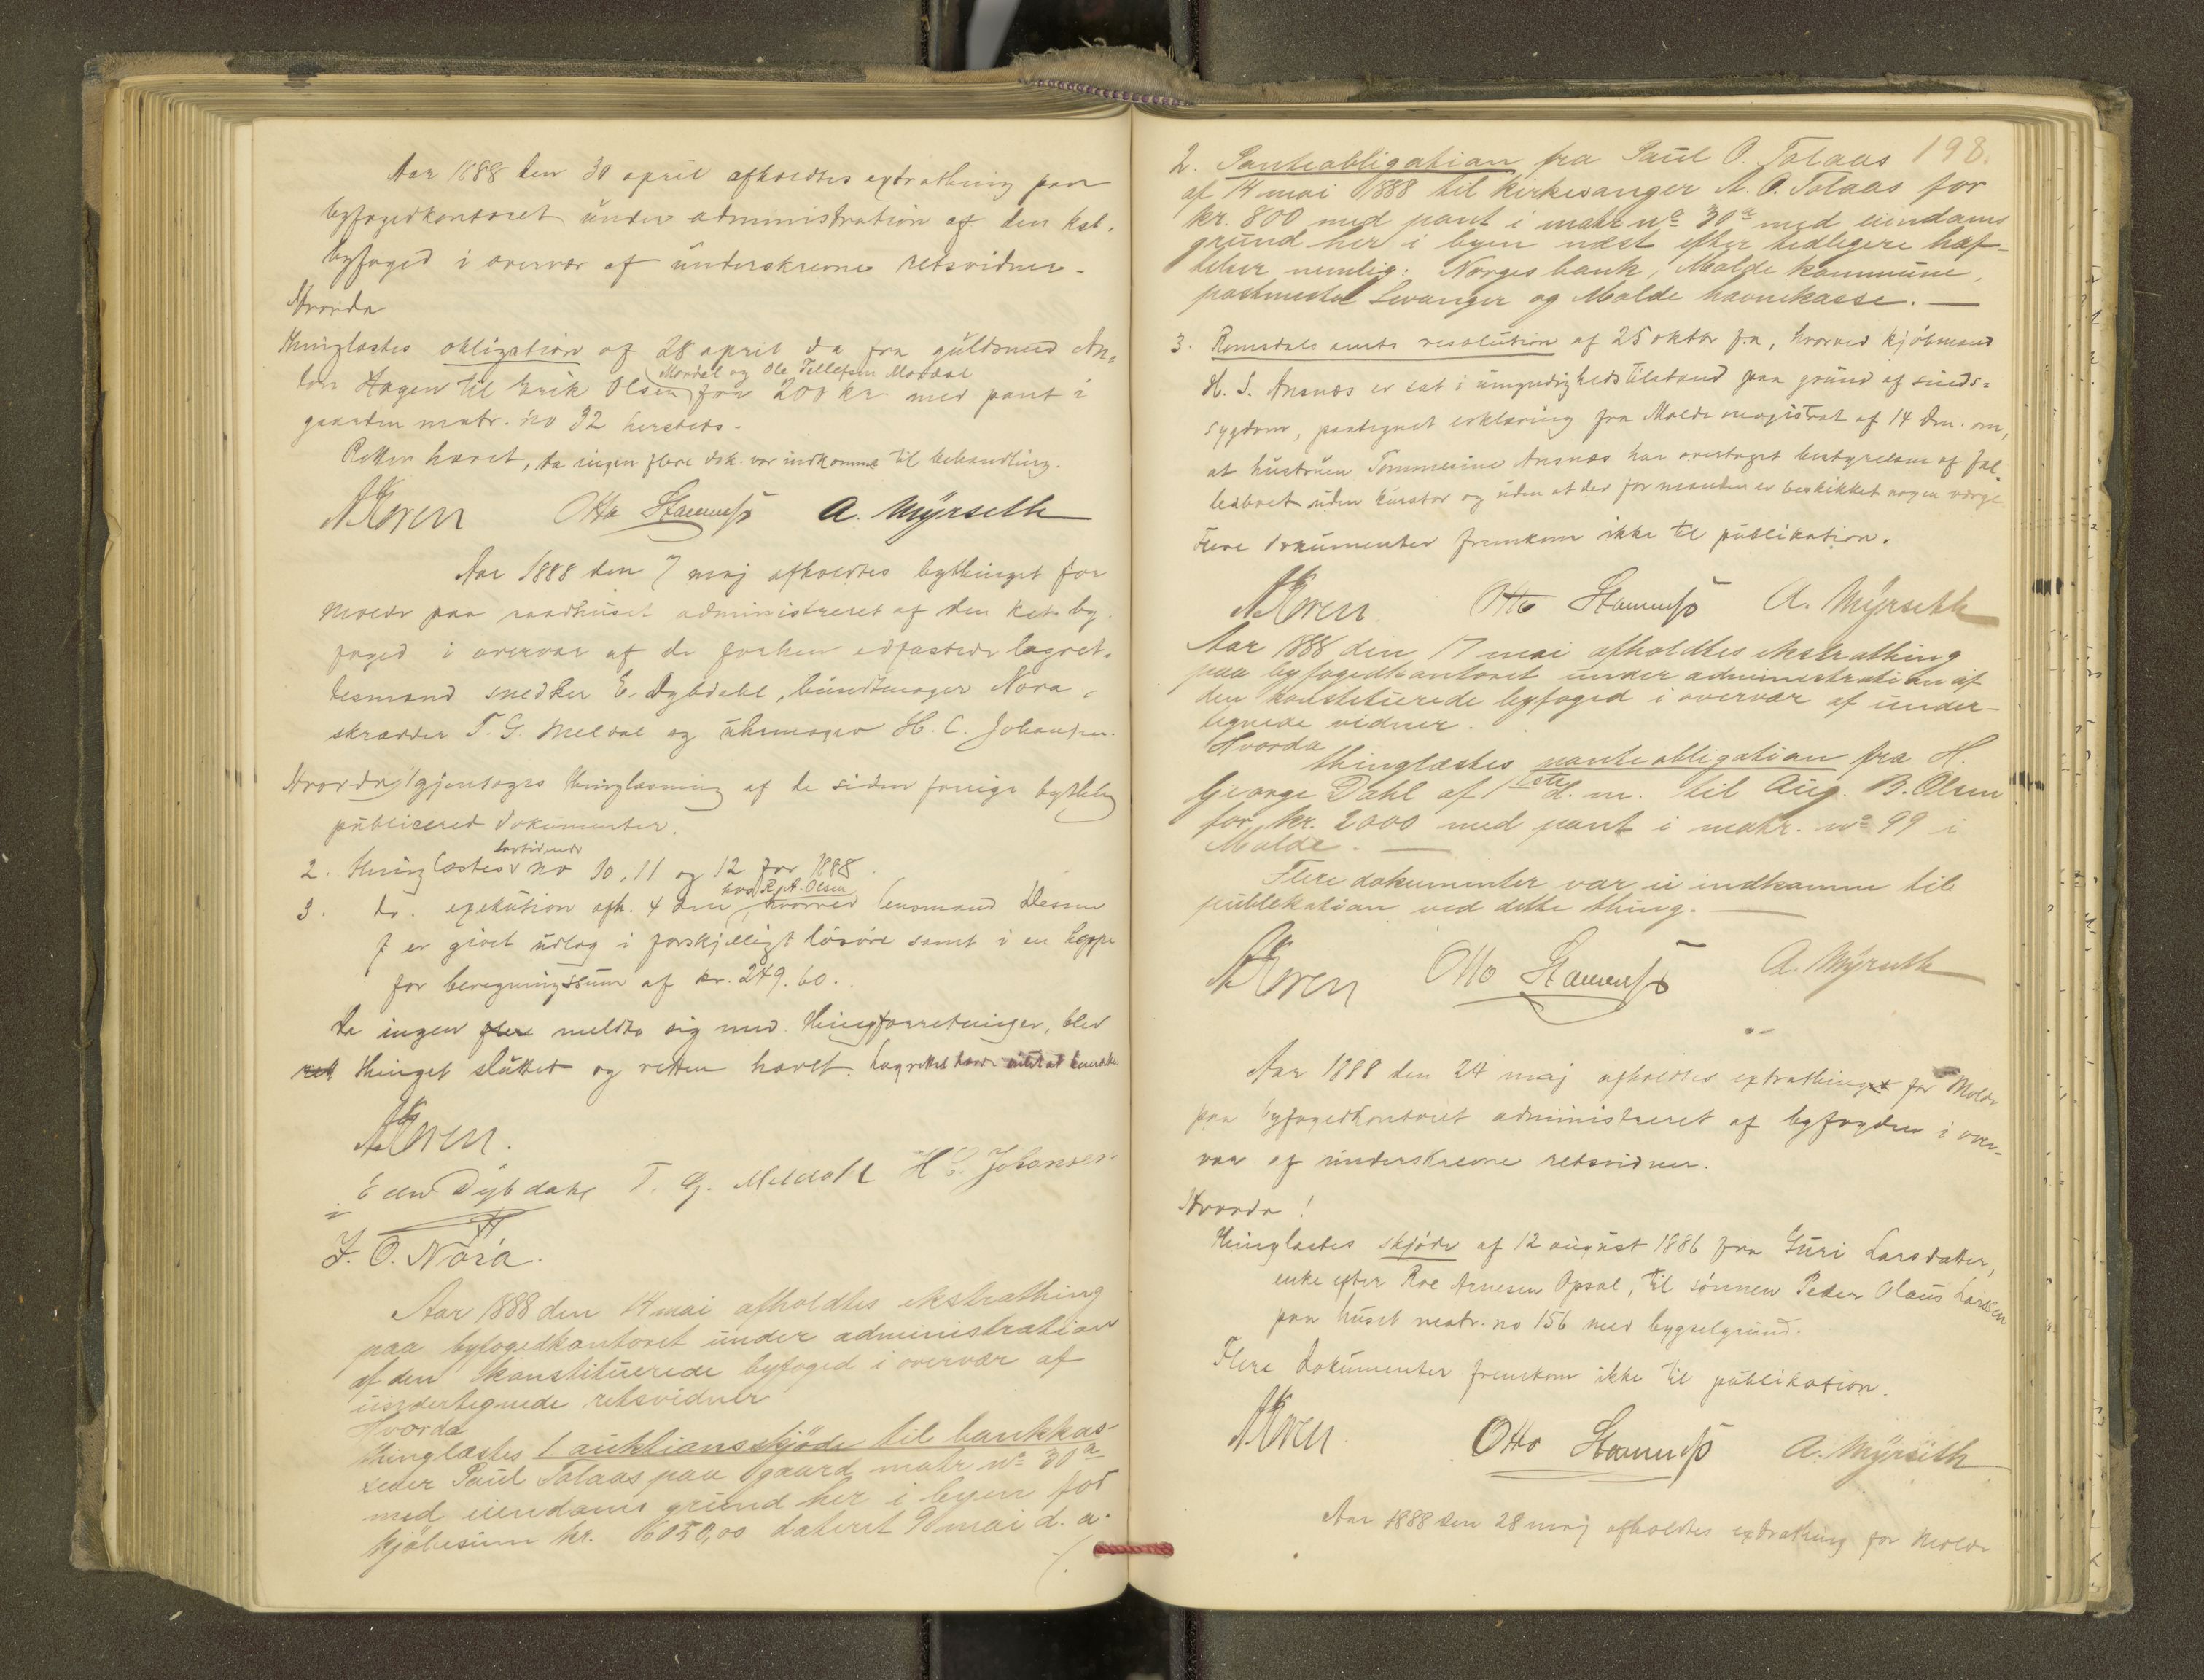 Aar 1888 den 30 april afholdtes extrathing paa
byfogedkontoret under administration af den kst.
byfoged i overvær af underskrevne retsvidner.
Hvorda
thinglæstes obligation af 28 april da fra guldsmed An-
Mordal og Ole Tellefsen Mordal
ton Hagen til Erik Olsen for 200 kr med pant i
gaarden matr. no 32 hersteds.
Retten hævet, da ingen flere dok. var indkomne til behandling.
NKoren Otto Stamnsø A. Myrseth
Aar 1888 den 7 maj afholdtes bythinget for
Molde paa raadhuset administreret af den kst. by
foged i overvær af de forhen edfæstede lagret-
tesmænd snedker E. Dybdahl, bundtmager Nora,
skrædder T. G. Meldal og uhrmager H. C. Johansen.
Hvorda gjentoges thinglæsning af de siden forrige bything
publicered dokumenter.
lovtidende
2. thinglæstes no 10, 11 og 12 for 1888.
hos R. A. Olsen
3. do. exekution afh. 4 den hvorved lensmand Dessen
f er givet udlæg i forskjelligt løsøre samt i en
for beregningssum af kr. 249.60.
Da ingen flere meldte sig med thingforretninger, blev
ret thinget sluttet og retten hævet. Lagrettet havde intet at bemærke
NKoren.
E Dybdahl T. G. Meldahl H C. Johansen
J. O. Nora.
Aar 1888 den 14 mai afholdtes ekstrathing
paa byfogedkontoret under administration
af den konstituerede byfoged i overvær af
undertegnede retsvidner
Hvorda
thinglæstes 1 auktionsskjøde til bankkas-
serer Paul Tolaas paa gaard matr no 30a
med eiendoms grund her i byen for
kjøbesum kr. 6050,00 dateret 9 mai d. a.
198.
2. Panteobligation fra Paul O. Tolaas
af 14 mai 1888 til kirkesanger A. O. Tolaas for
kr. 800 med pant i matr no 30a med eiendoms
grund her i byen næst efter tidligere hæf-
telser nemlig: Norges bank, Molde kommune,
postmester Levanger og Molde havnekasse. —
3. Romsdals amts resolution af 25 oktbr f.a, hvorved kjøbmand
H. S. Ansnæs er sat i umyndighedstilstand paa grund af sinds-
sygdom, paategnet erklæring fra Molde magistrat af 14 dm. om,
at hustruen Tommesine Ansnæs har overtaget bestyrelsen af fæl
lesboet uden kurator og uden at der for manden er beskikket nogen værge
Flere dokumenter fremkom ikke til publikation.
NKoren. Otto Stamnsø A. Myrseth
Aar 1888 den 17 mai afholdtes ekstrathing
paa byfogedkontoret under administration af
den konstituerede byfoged i overvær af under-
tegnede vidner.
Hvorda
thinglæstes panteobligation fra H.
George Dahl af 1ste d. m. til Aug. B. Olsen
for kr. 2000 med pant i matr. no 99 i
Molde. —
Flere dokumenter var ei indkomne til
publikation ved dette thing. —
NKoren Otto Stamnsø A. Myrseth
Aar 1888 den 24 maj afholdtes extrathinget for Molde
paa byfogedkontoret administreret af byfogden i over-
vær af underskrevne retsvidner.
Hvorda!
thinglæstes skjøde af 12 august 1886 fra Guri Larsdatter,
enke efter Roe Arnesen Opsal, til sønnen Peder Olaus Larssen
paa huset matr. no 156 med bygselgrund.
Flere dokumenter fremkom ikke til publikation.
NKoren Otto Stamnsø A. Myrseth
Aar 1888 den 28 maj afholdtes extrathing for Molde